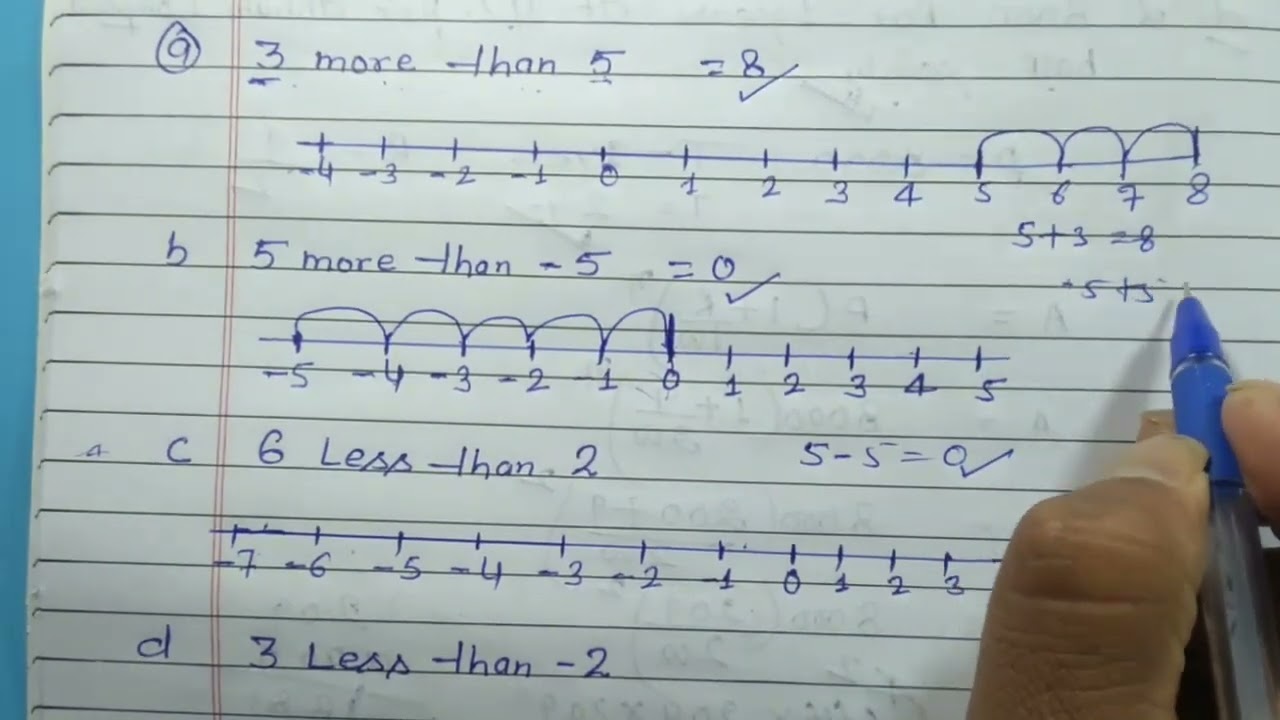 a 3 more than 5 = 8
-4 -3 -2 -1 0 1 2 3 4 5 6 7 8
5+3 = 8
b 5 more than -5 = 0
-5+5
-5 -4 -3 -2 -1 0 1 2 3 4 5
c 6 Less than 2 5-5=0
-7 -6 -5 -4 -3 -2 -1 0 1 2 3
d 3 Less than -2